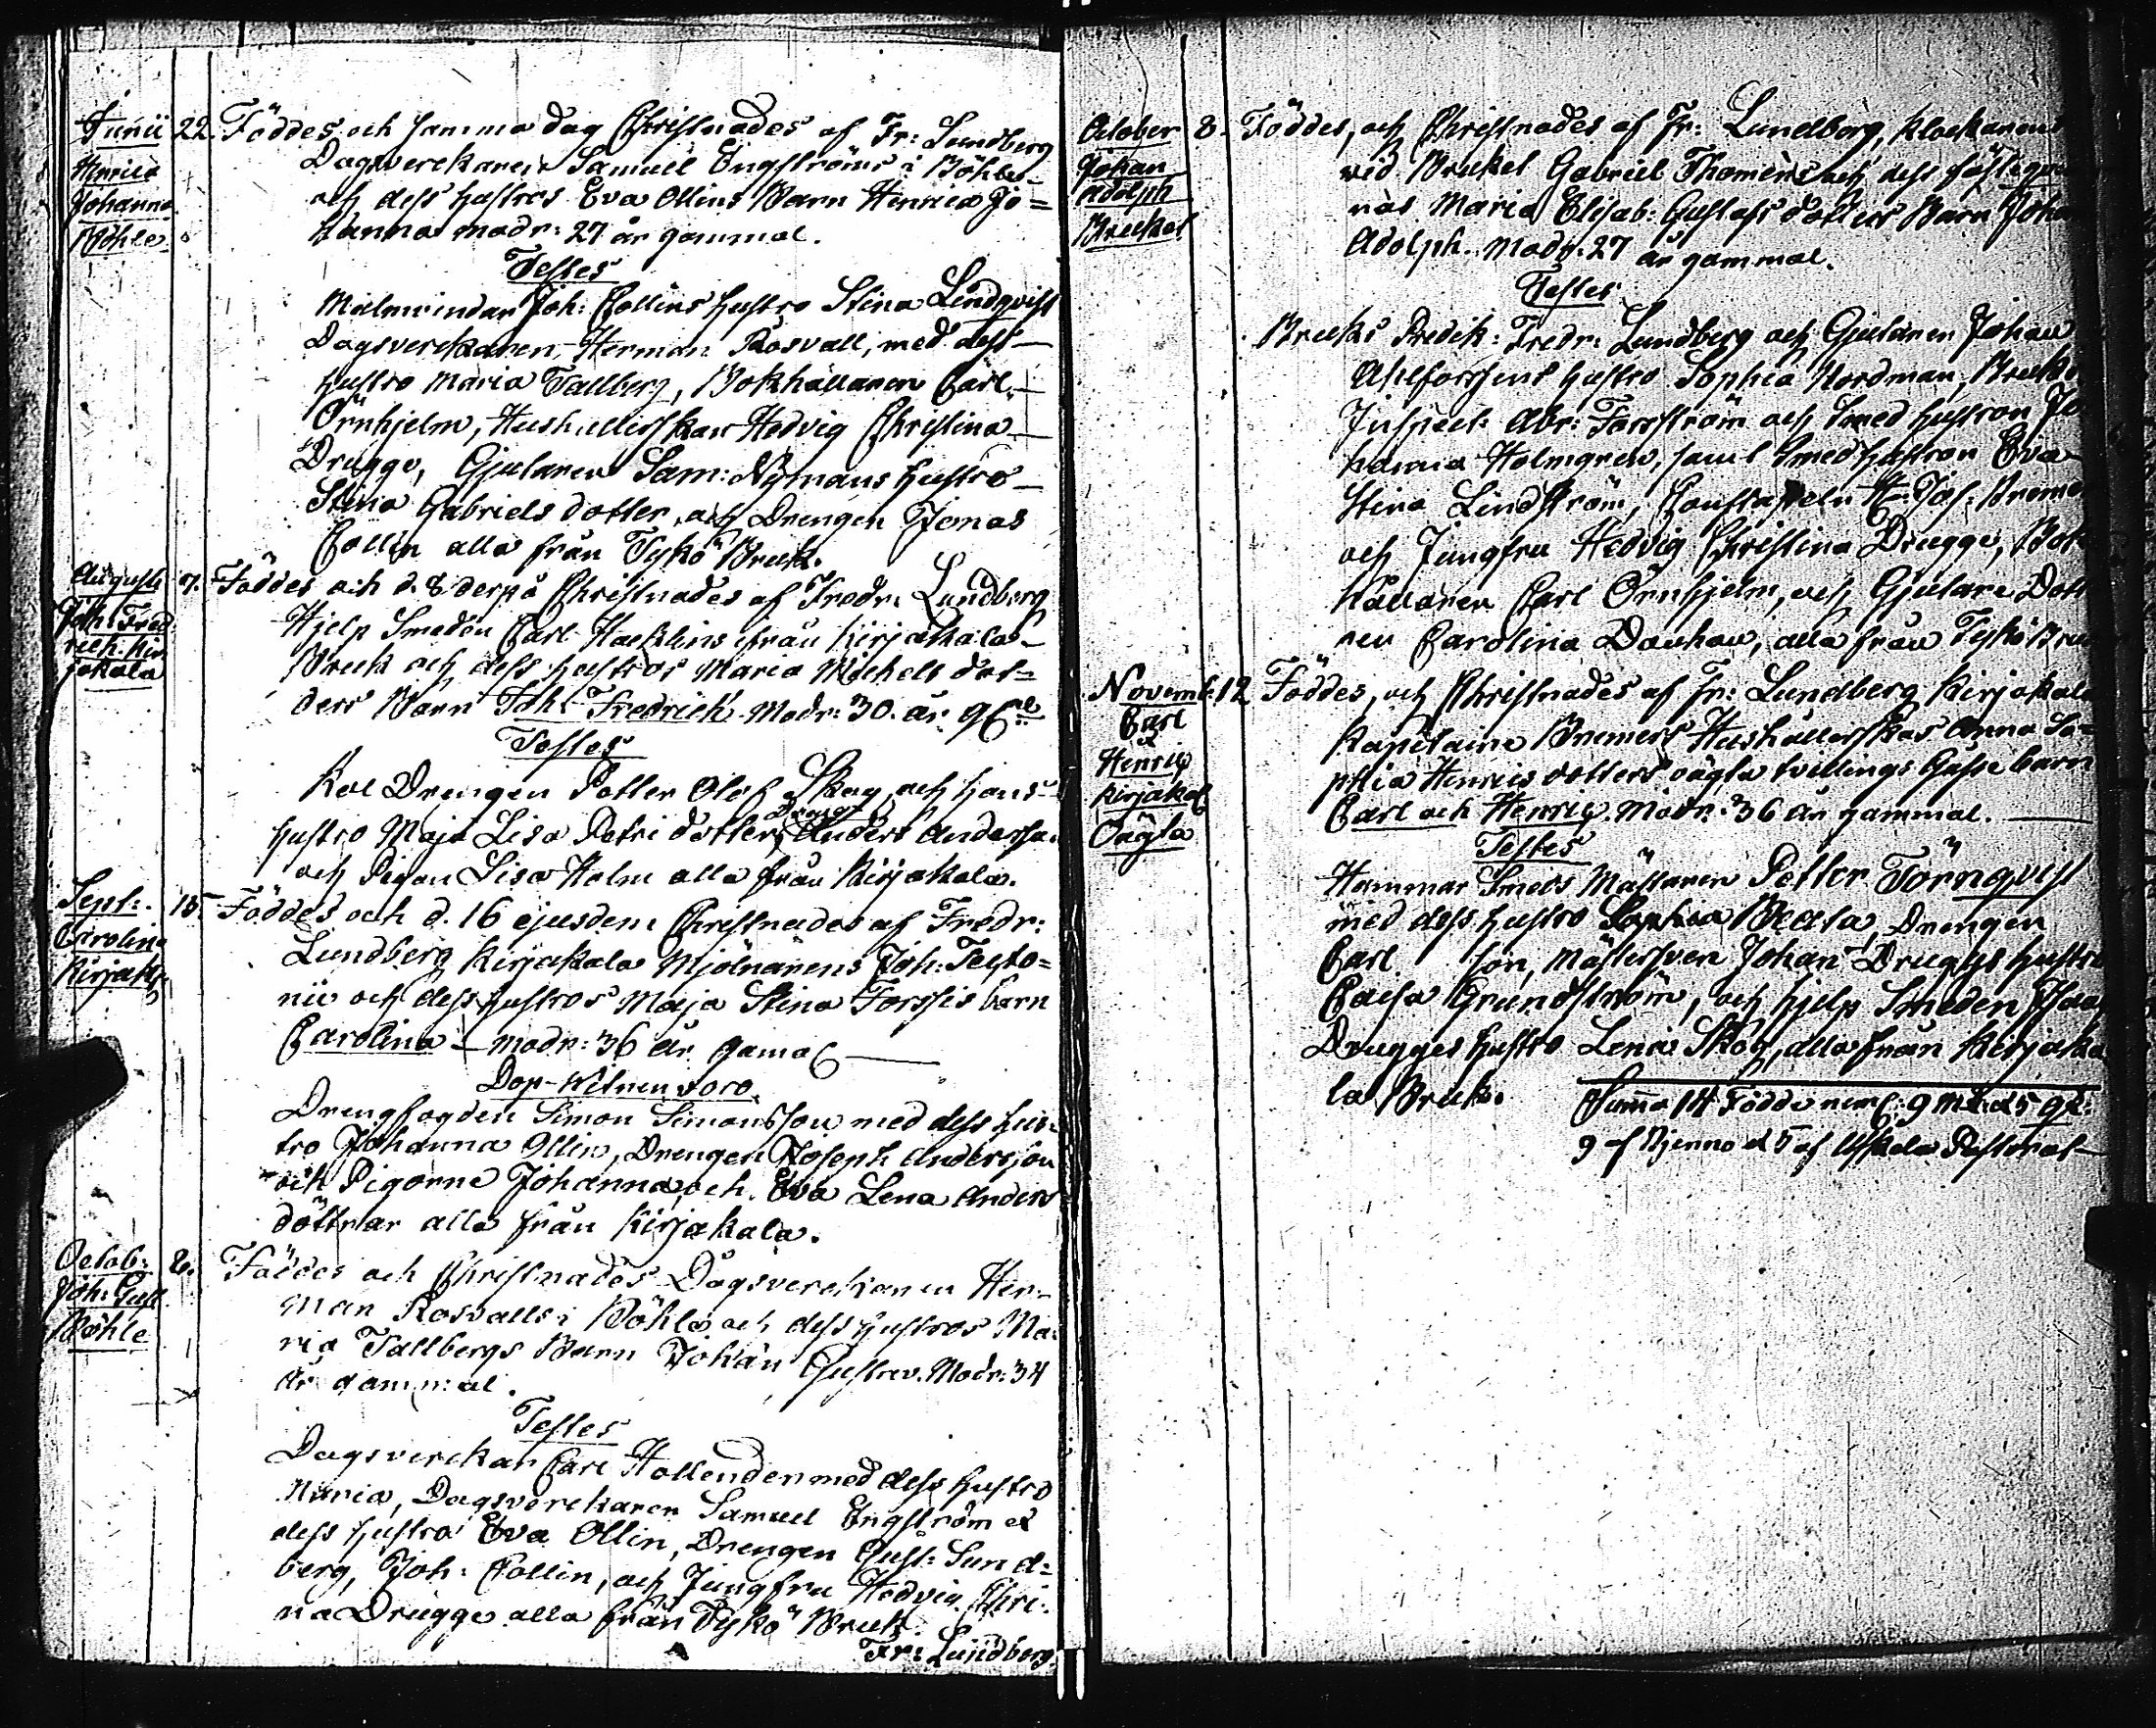 Junii 22. Föddes och samma dag Christnades af Fr: Lundberg
Henrica Dagsverckaren Samuel Engströms i Böhle
Johanna och dess hustros Eva Ollins Barn Henrica Jo=
Böhle hanna modr: 27 år gammal.
Testes
Joh: Collins hustro Stina Lindqvist
Dagsverckaren Herman Rosvall, med dess
hustro Maria Tallberg, Bokhållaren Carl
Örnhjelm, Hushållerskan Hedvig Christina
Drugge, Gjutaren Sam: Nymans hustro
Stina Gabriels dotter, och Drengen Jonas
Collin alla från Tykö Bruk.
Augusti 7. Föddes och d. 8 derpå Christnades af Fredr: Lundberg
Joh: Fred Hjelp Smeden Carl Hacklins ifrån Kirjakala
rich Kir Bruk och dess hustros Maria Michels dot=
jakala ters Barn Joh: Fredrich Modr: 30. år gl
Testes
Kol Drengen Petter Olof Skog och hans
Dreng
hustro Maja Lisa Petri dotter, Anders Anderss:
och Pigan Lisa Holm alla från Kirjakala.
Sept: 15. Föddes och d. 16 ejusdem Christnades af Fredr:
Carolina Lundberg Kirjakala Mjölnarens Joh:
Kirjak: och dess hustros Maja Stina Forssis barn
Carolina modr: 36 år gamal
Dop-Witnen voro.
Drengfogden Simon Simonsson med dess hus=
tro Johanna Ollin, Drengen Joseph Andersson
och Pigorne Johanna och Eva Lena Anders
döttrar alla från Kirjakala.
Octob: 2. Föddes och Christnades Dagsverckaren Her=
Joh: Gust man Rosvalls i Böhle och dess hustros Ma=
Böhle ria Tallbergs Barn Johan Gustav. Modr: 34
år gammal.
Testes
Dagsverckar Carl Hollender med dess hustro
Maria, Dagsverckaren Samuel Engström et
dess hustro Eva Ollin, Drengen Gust: Sund=
berg, Joh: Collin, och Jungfru Hedvig Chri:
na Drugge alla från Tykö Bruk.
Fr: Lundberg
October 8. Föddes, och Christnades af Fr: Lundberg, Klockarens
Johan vid Bruket Gabriel Thomens och dess
Adolph nas Maria Elisab: Gustafs dotters Barn Joha
Bruket Adolph. Modr: 27 år gammal.
Testes
Bruks Predik: Fredr: Lundberg och Gjutaren Johan
Ahlforssens hustro Sophia Nordman, Bruks
Inspect: Abr: Forsström och Smed hustron Jo
hanna Holmgren, samt Smed hustron Eva
Stina Lindström, Jos: Bremer
och Jungfru Hedvig Christina Drugge, Bok
hållaren Carl Örnhjelm, och Gjutare Dott
ren Carolina alla från Tykö Bruk
Novemb: 12 Föddes, och Christnades af Fr: Lundberg Kirjakala
Carl Kapitaine Bremers Hushållerskas Anna So=
& phia Henrics dotters oägta tvillings Gosse barn
Henric Carl och Henric. Modr: 36 år gammal.
Kirjakal
Oägta
Testes
Hammar Smeds Mästaren Petter Törnqvist
med dess hustro Sophia Beata, Drengen
Carl son, Mästersven Johan Drugges hustro
Caisa Grundström, och hjelp Smeden Isaac
Drugges hustro Lena Skog, alla från Kirjaka
la Bruk.
Summa 14 Födde neml: 9 Mk et 5 qk:
9 af Bjerno et 5 af Uskela Pastorat